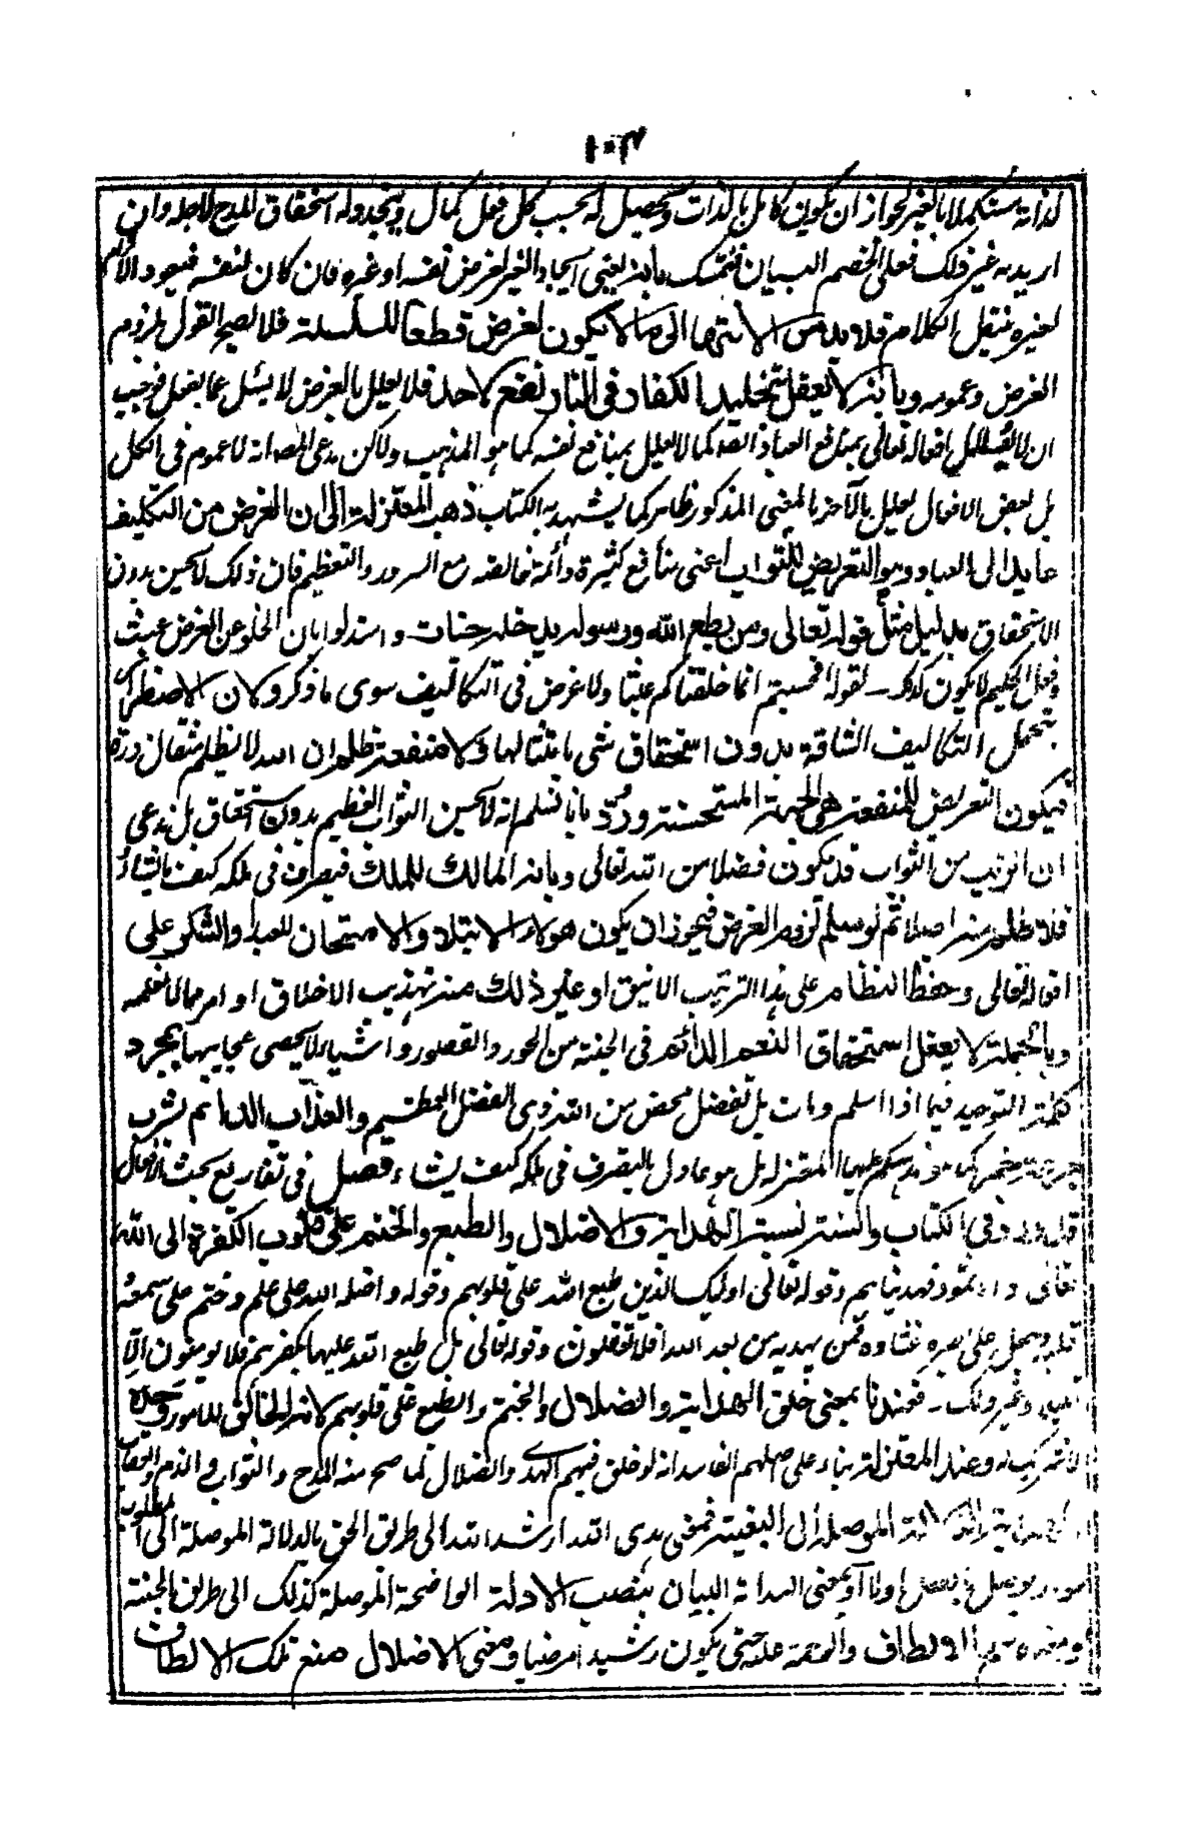 ١٠٣
لذاته مستكملا بالغير لجواز ان يكون كاملا بالذات وتحصيل له بحسب كل فعل كمال ويتجدد له استحقاق المدح لاجله وان
اريد به غير ذلك فعلى الخصم البيان فتمسك بانه يعنى ايجاد الغير لغرض نفسه او غيره فان كان لنفسه فيعود الالزام
لغيره ننقل الكلام فلا بد من الانتهاء الى ما لا يكون لغرض قطعا للسلسلة فلا يصح القول بلزوم
الغرض وعمومه وبانه لا يعقل بتخليد الكفار فى النار نفع لاحد فلا يعلل بالغرض لا يسئل عما يفعل فوجب
ان لا تعلل افعاله تعالى بمنافع العباد كما لا تعلل بمنافع نفسه كما هو المذهب ولكن يدعى انه لا عموم فى الكل
بل بعض الافعال يعلل بالآخر بالمعنى المذكور ظاهر كما يشهد به الكتاب ذهب المعتزلة الى ان الغرض من التكليف
عايد الى العباد وهو التعريض للثواب اعنى منافع كثيرة دائمة خالصة مع السرور والتعظيم فان ذلك لا يحسن بدون
الاستحقاق بدليل مثل قوله تعالى ومن يطع الله ورسوله يدخله جنات واستدلوا بان الخلو عن الغرض عبث
وفعل الحكيم لا يكون كذلك لقوله افحسبتم انما خلقناكم عبثا ولا غرض فى التكاليف سوى ما ذكر وكان الاضطرار
بتحمل التكاليف الشاقة بدون استحقاق شى بامتثالها ولا منفعة ظلم ان الله لا يظلم مثقال ذرة
فيكون التعريض للمنفعة هى الجهة المستحسنة ورد بانا لا نسلم انه لا يحسن الثواب العظيم بدون استحقاق بل ندعى
ان الترتيب من الثواب قد يكون فضلا من الله تعالى وبانه المالك للملك فيصرف فى ملكه كيف يشاء
فلا ظلم منه اصلا ثم لو سلم لزوم الغرض فيجوز ان يكون هو الابتلاء والامتحان للعبد او الشكر على
افعاله تعالى وحفظ النظام على هذا الترتيب الانيق او غير ذلك منه تهذيب الاخلاق او امر مما لا نعلمه
وبالجملة لا يعقل استحقاق النعم الدائم فى الجنة من الحور والقصور واشياء لا يحصى عجايبها بمجرد
كلمة التوحيد فيما اذا اسلم ومات بل تفضل محض من الله ذى الفضل العظيم والعذاب الدائم بشرب
جرعة خمر كما هو مذهبكم ايها المعتزلة بل هو عادل بالتصرف فى ملكه كيف يشاء فصل فى تفاريع بحث الافعال
قد ورد فى الكتاب والسنة نسبة الهداية والاضلال والطبع والختم على قلوب الكفرة الى الله
تعالى واما ثمود فهديناهم وقوله تعالى اوليك الذين طبع الله على قلوبهم وقوله واضله الله على علم وختم على سمعه
قلبه وجعل على بصره غشاوة فمن يهديه من بعد الله افلا تعقلون وقوله تعالى بل طبع الله عليها بكفرهم فلا يومنون الا
قليلا وغير ذلك فعندنا بمعنى خلق الهداية والضلال والختم والطبع على قلوبهم لانه الخالق للامور وحده
لا شريك له وعند المعتزلة بناء على اصلهم الفاسد انه لو خلق فيهم الهدى والضلال لما صح منه المدح والثواب والذم والعقاب
الهداية الدلالة الموصلة الى البغية فمعنى هدى الله ارشد الله الى طريق الحق بالدلالة الموصلة الى المطلوب
يوصل بالفعل اولا او بمعنى الهداية البيان بنصب الادلة الواضحة الموصلة كذلك الى طريق الجنة
الالطاف حتى يكون رشيدا مرضيا ومعنى الاضلال منع تلك الالطاف